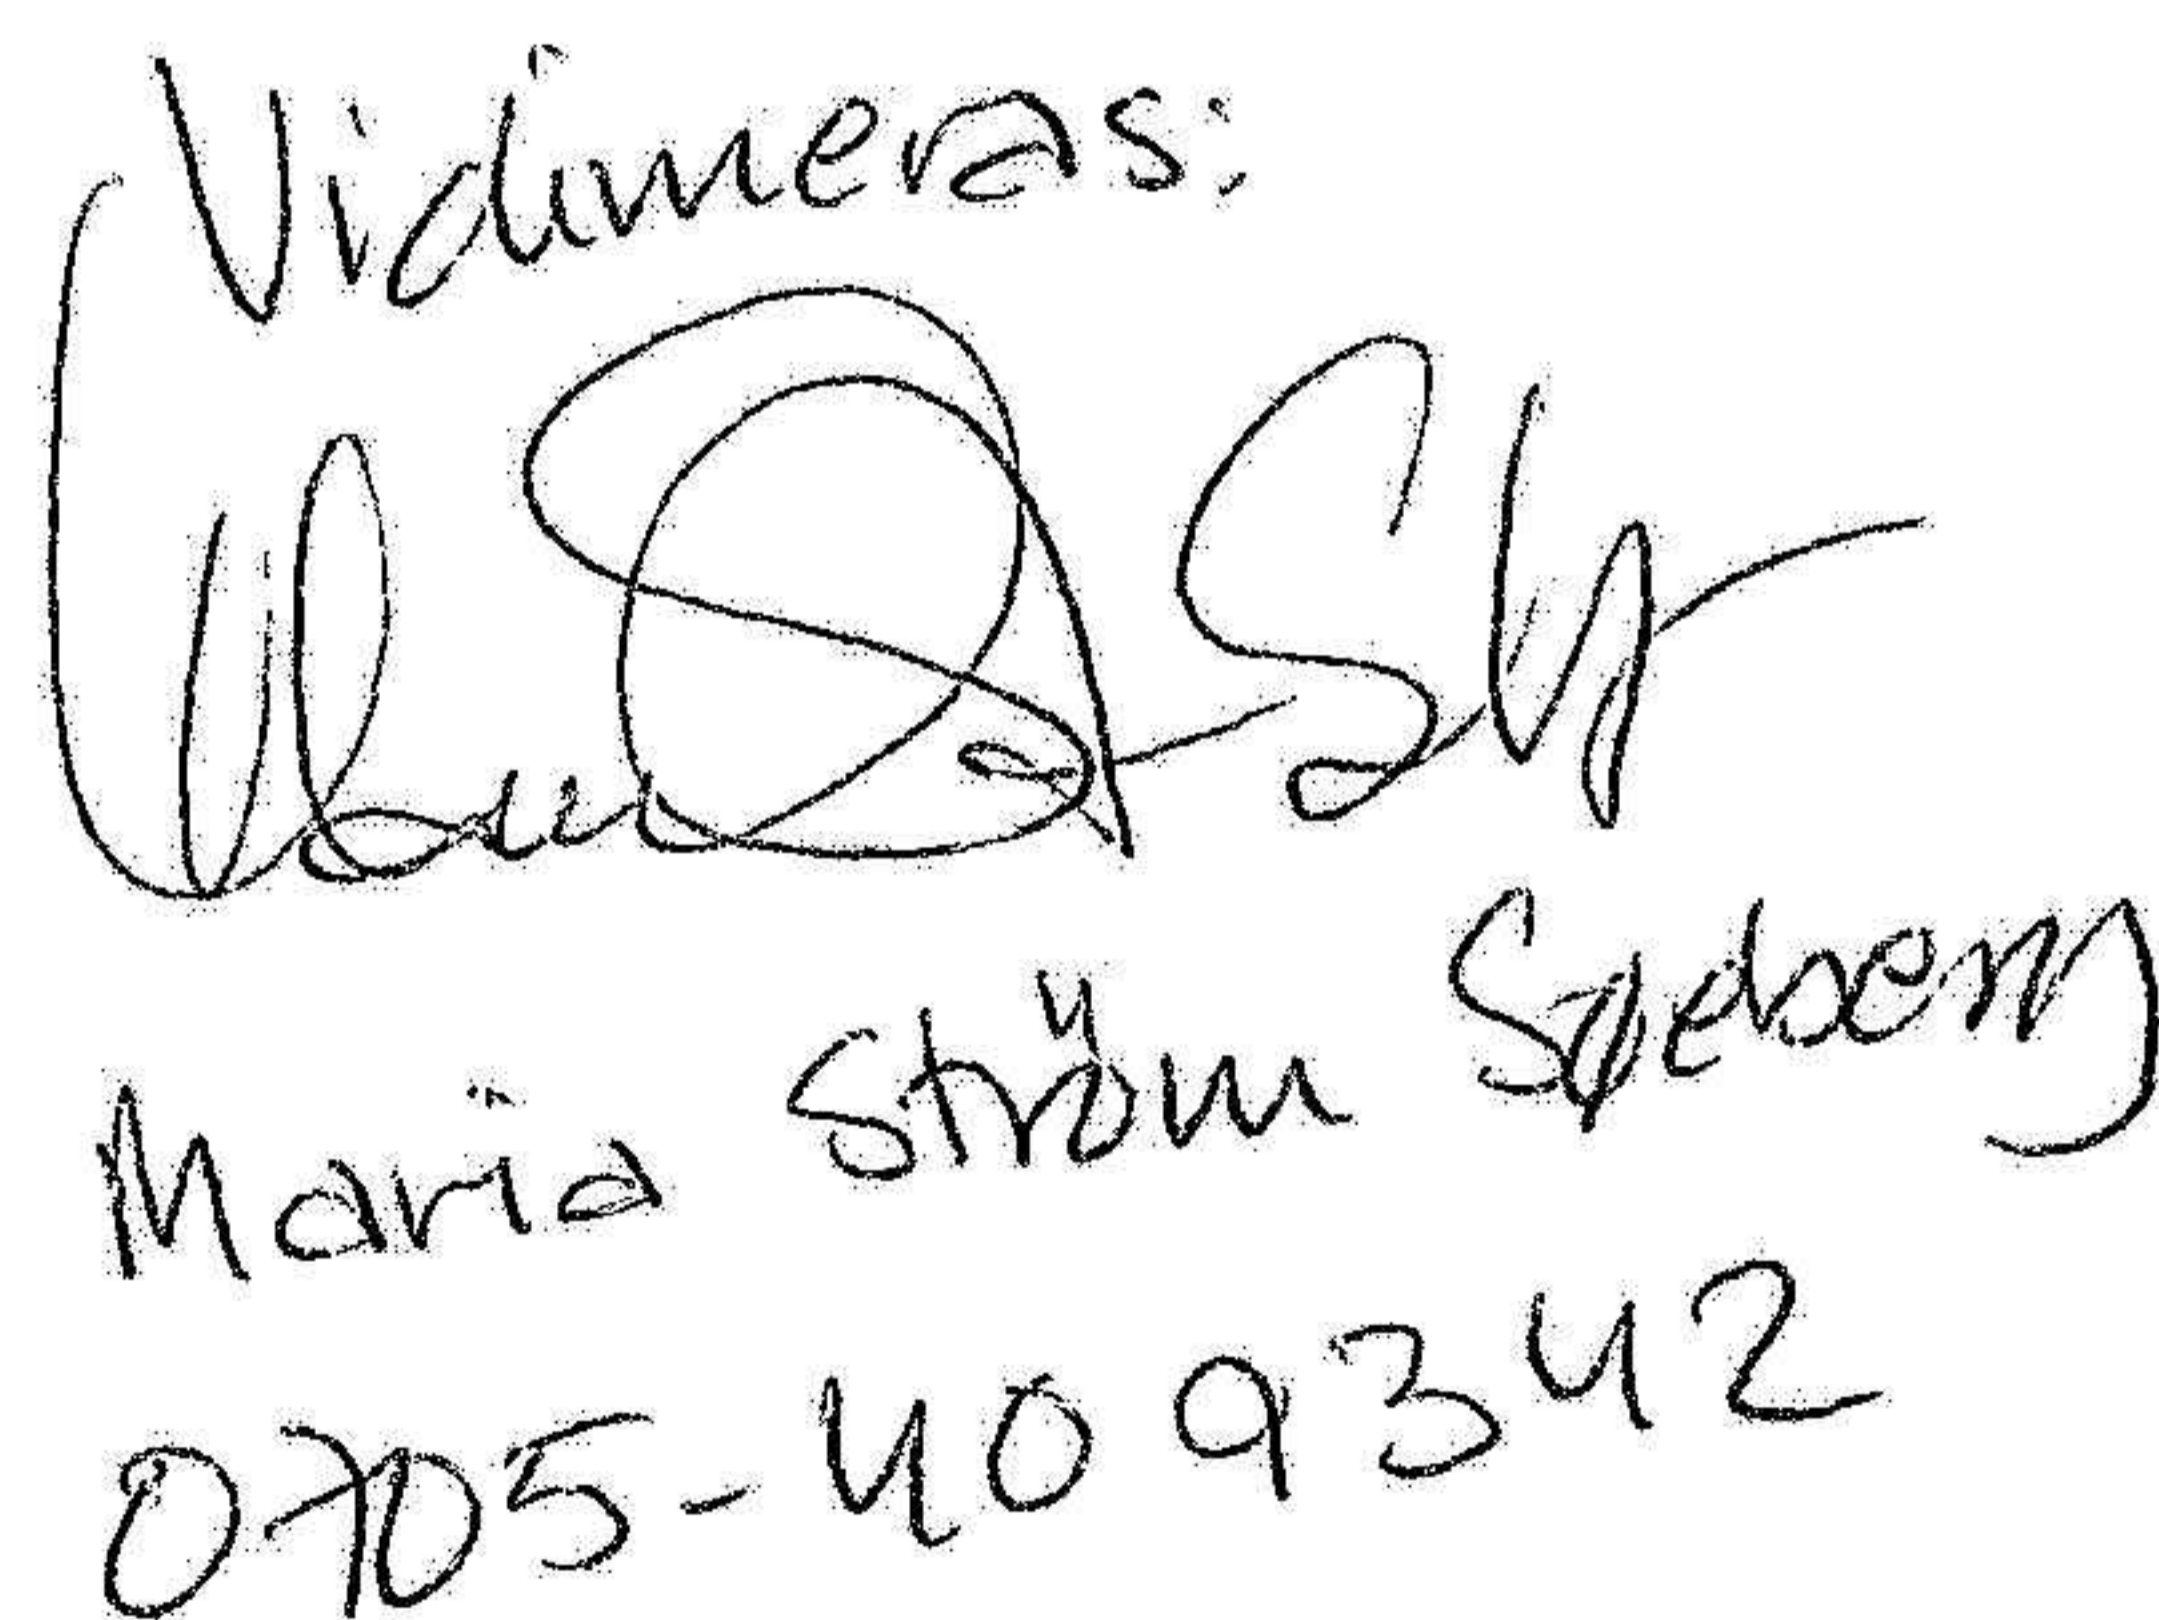 Vidimeras:
Maria Ström
0705-409342